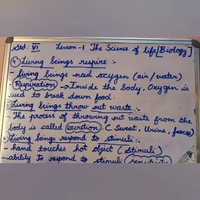 Std. VI Lesson-1 The Science of Life [Biology]
* Living beings respire :-
- Living beings need oxygen (air/water)
Respiration → Inside the body, Oxygen is
used to break down food.
* Living beings throw out waste -
- The process of throwing out waste from the
body is called excretion (Sweat, Urine, faeces)
* Living beings respond to stimuli -
- hand touches hot object (Stimuli)
- ability to respond to stimuli